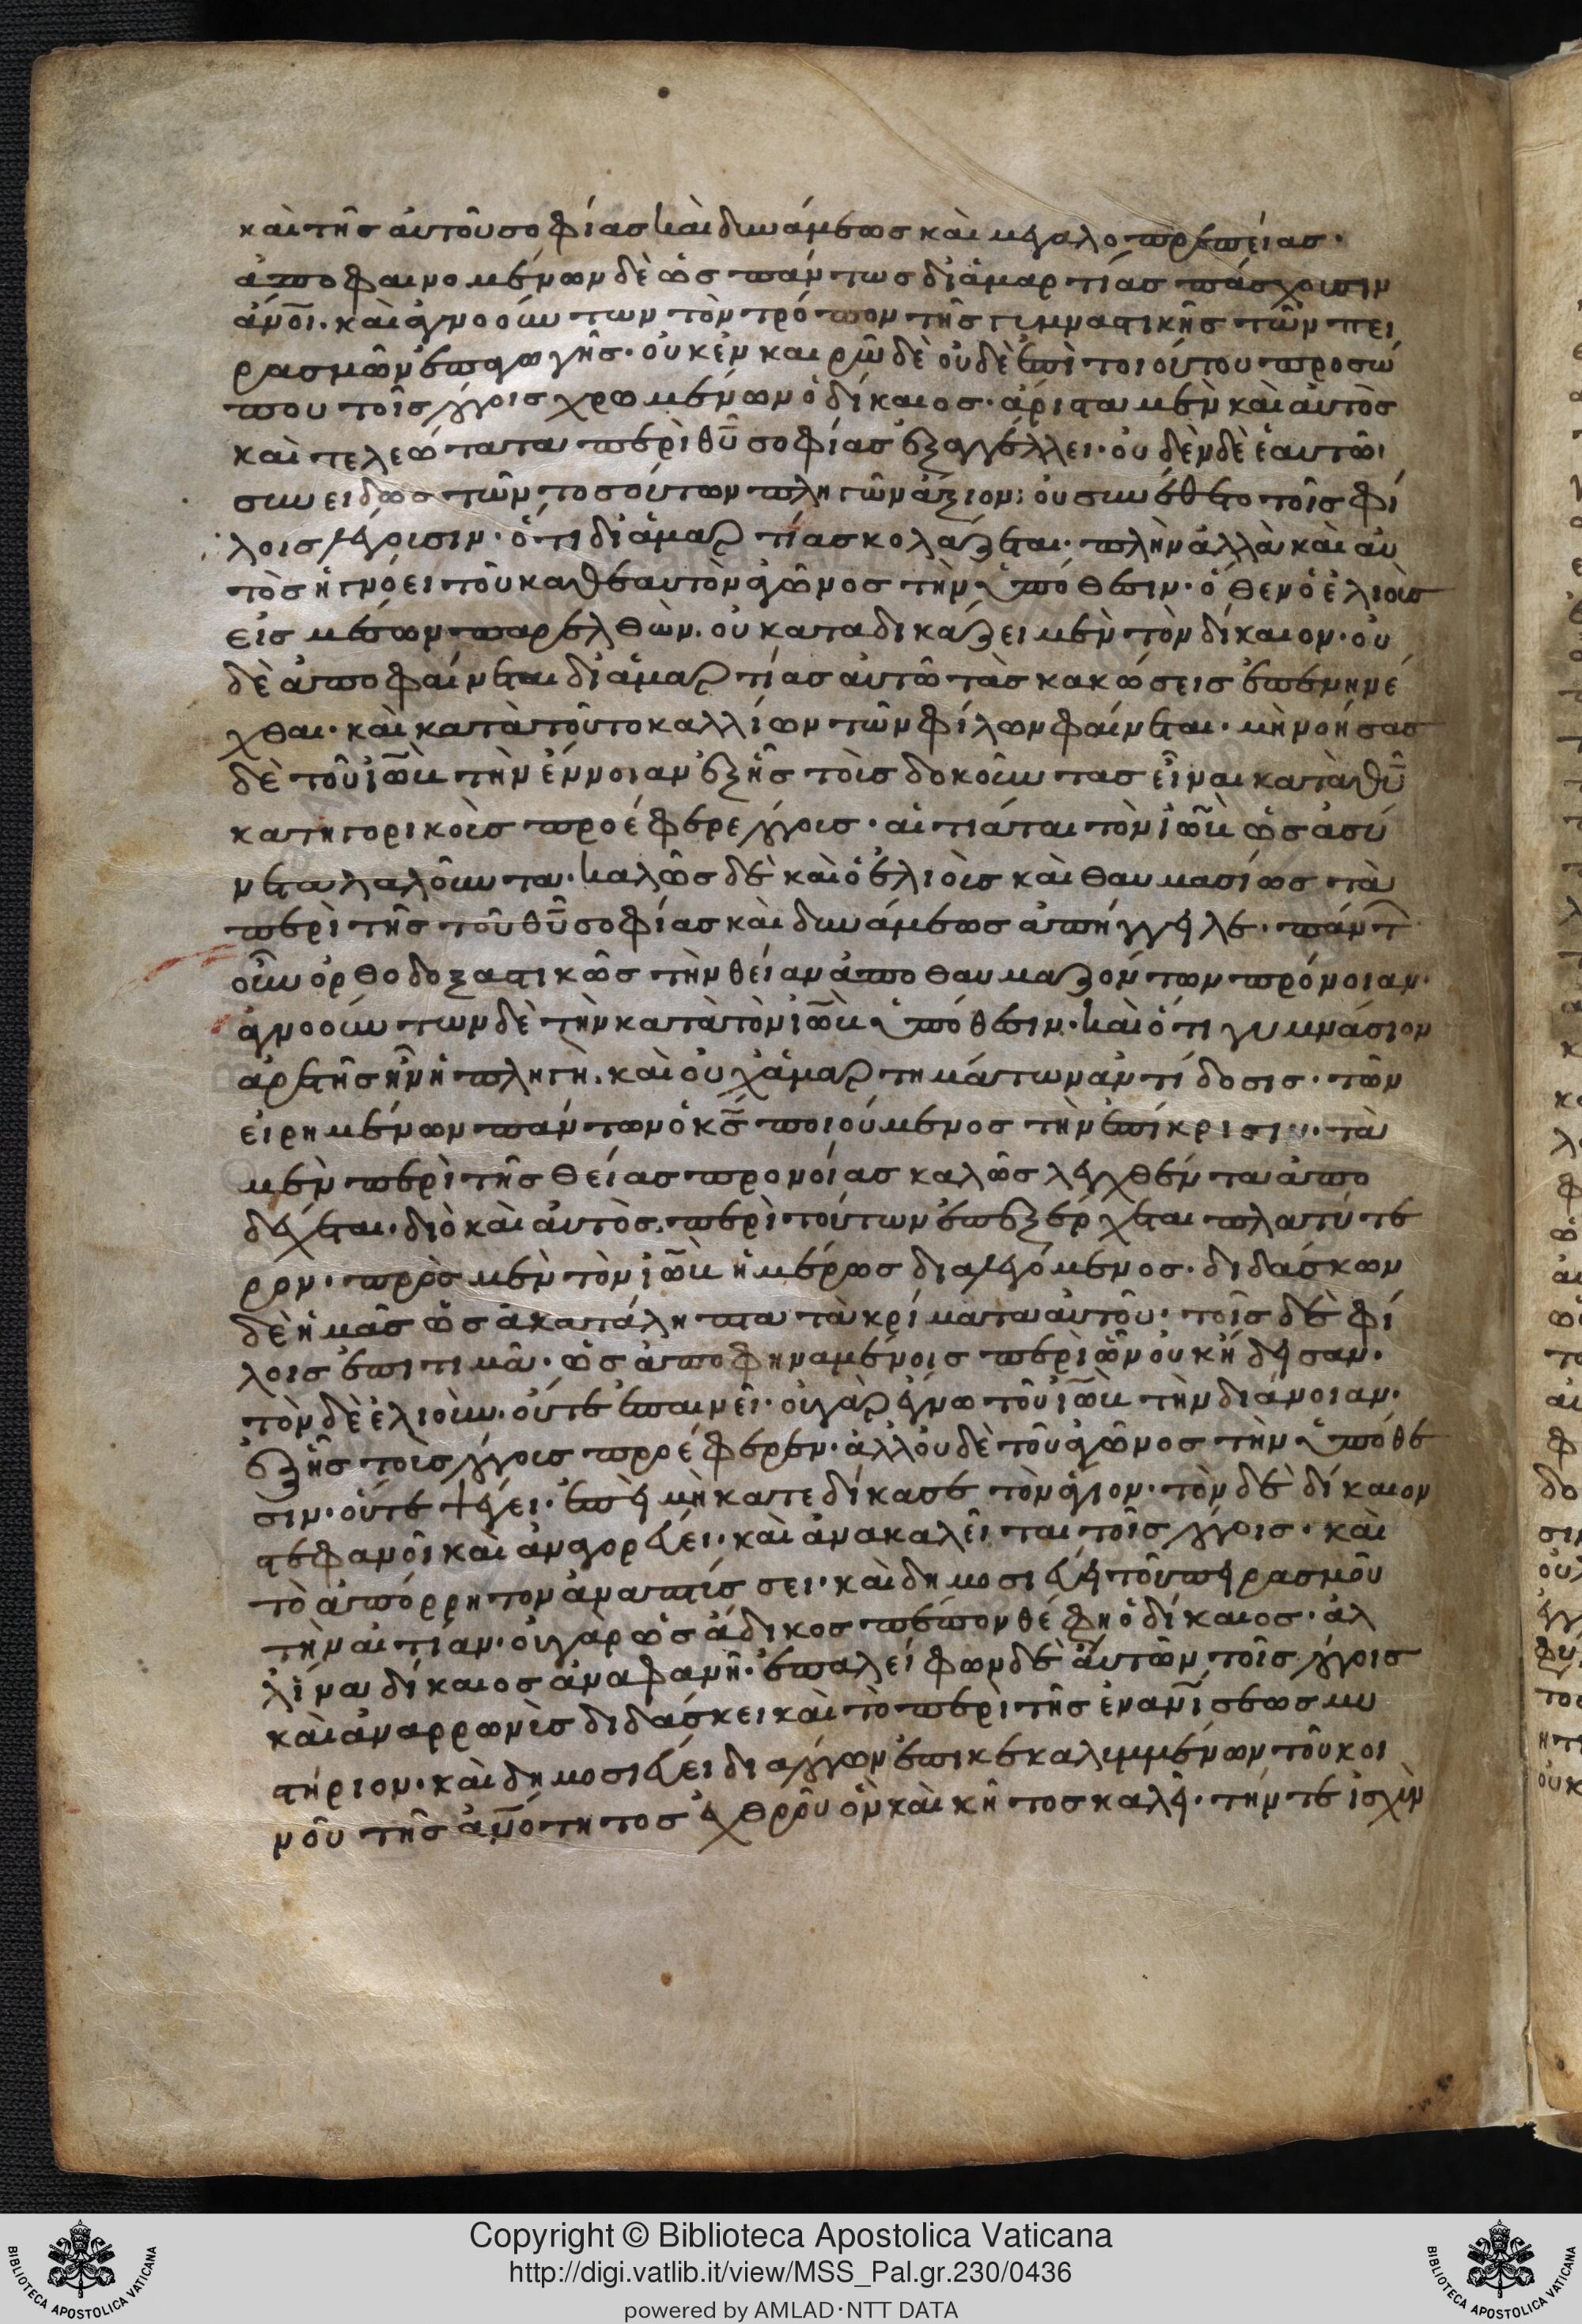 καὶ τῆς αὐτοῦ σοφίας καὶ δυνάμεως καὶ μεγαλοπρεπείας·
ἀποφαινομένων δὲ ὡς πάντως δι' ἁμαρτίας πάσχουσιν
ἄνοι· καὶ ἀγνοούντων τὸν τρόπον τῆς γυμναστικῆς τῶν πει
ρασμῶν ἐπαγωγῆς· οὐκ ἐν καιρῶ δὲ οὐδὲ ἐπὶ τοιούτου προσώ
που τοῖς λόγοις χρωμένων ὁ δίκαιος· ἄριστα μὲν καὶ αὐτὸς
καὶ τελεώτατα περὶ θυ σοφίας ἐξαγγέλλει· οὐδὲν δὲ ἑαυτῶι
συνειδὼς τῶν τοσούτων πληγῶν ἄξιον· οὐ συνέθετο τοῖς φί
λοις λέγουσιν· ὅτι δι' ἁμαρτίας κολάζεται· πλὴν ἀλλὰ καὶ αὐ
τὸς ἠγνόει τοῦ καθ' ἑαυτὸν ἀγῶνος τὴν ὑπόθεσιν· ὅθεν ὁ ἐλιοὺς
εἰς μέσον παρελθὼν· οὐ καταδικάζει μὲν τὸν δίκαιον· οὐ
δὲ ἀποφαίνεται δι' ἁμαρτίας αὐτῶ τὰς κακώσεις ἐπενηνέ
χθαι· καὶ κατὰ τοῦτο καλλίων τῶν φίλων φαίνεται· μὴ νοήσας
δὲ τοῦ ἰὼβ τὴν ἔννοιαν ἐξῆς τοὺς δοκοῦντας εἶναι κατὰ θυ
κατηγορικοὺς προέφερε λόγους· αἰτιᾶται τὸν ἰὼβ ὡς ἀσύ
νετα λαλοῦντα· καλῶς δὲ καὶ ὁ ἐλιοὺς καὶ θαυμασίως τὰ
περὶ τῆς τοῦ θυ σοφίας καὶ δυνάμεως ἀπήγγειλε· πάντ
οὖν ὀρθοδοξαστικῶς τὴν θείαν ἀποθαυμαζόντων πρόνοιαν·
ἀγνοούντων δὲ τὴν κατὰ τὸν ἰὼβ ὑπόθεσιν· καὶ ὅτι γυμνάσιον
ἀρετῆς ἦν ἡ πληγὴ· καὶ οὐχ ἁμαρτημάτων ἀντίδοσις· τῶν
εἰρημένων πάντων ὁ κς ποιούμενος τὴν ἐπίκρισιν· τὰ
μὲν περὶ τῆς θείας προνοίας καλῶς λεχθέντα ἀπο
δέχεται· διὸ καὶ αὐτὸς περὶ τούτων ἐπεξέρχεται πλατύτε
ρον· πρὸς μὲν τὸν ἰὼβ ἡμέρως διαλεγόμενος· διδάσκων
δὲ ἡμᾶς ὡς ἀκατάληπτα τὰ κρίματα αὐτοῦ· τοῖς δὲ φί
λοις ἐπιτιμᾶ· ὡς ἀποφηναμένοις περὶ ὧν οὐκ ἤδεσαν·
τὸν δὲ ἐλιοὺν· οὔτε ἐπαινεῖ· οὐ γὰρ ἔγνω τοῦ ἰὼβ τὴν διάνοιαν·
ἐξῆς τοὺς λόγους προέφερεν· ἀλλ' οὐδὲ τοῦ ἀγῶνος τὴν ὑπόθε
σιν· οὔτε ψέγει· ἐπεὶ μὴ κατεδίκασε τὸν ἅγιον· τὸν δὲ δίκαιον
στεφανοῖ καὶ ἀναγορεύει· καὶ ἀνακαλεῖται τοῖς λόγοις· καὶ
τὸ ἀπόρρητον ἀναπτύσσει· καὶ δημοσιεύει τοῦ πειρασμοῦ
τὴν αἰτίαν· οὐ γὰρ ὡς ἄδικος πέπονθέ φη ὁ δίκαιος· ἀλ
λ' ἵνα δίκαιος ἀναφανῆ· ἐπαλείφων δὲ αὐτῶν τοῖς λόγοις
καὶ ἀναρρωνὺς διδάσκει καὶ τὸ περὶ τῆς ἐνανίσεως μυ
στήριον· καὶ δημοσιεύει δια λόγων ἐπικεκαλυμμένων τοῦ κοι
νοῦ τῆς ἀνότητος ἐχθροῦ ὃν καὶ κῆτος καλεῖ· τήν τε ἰσχὺν